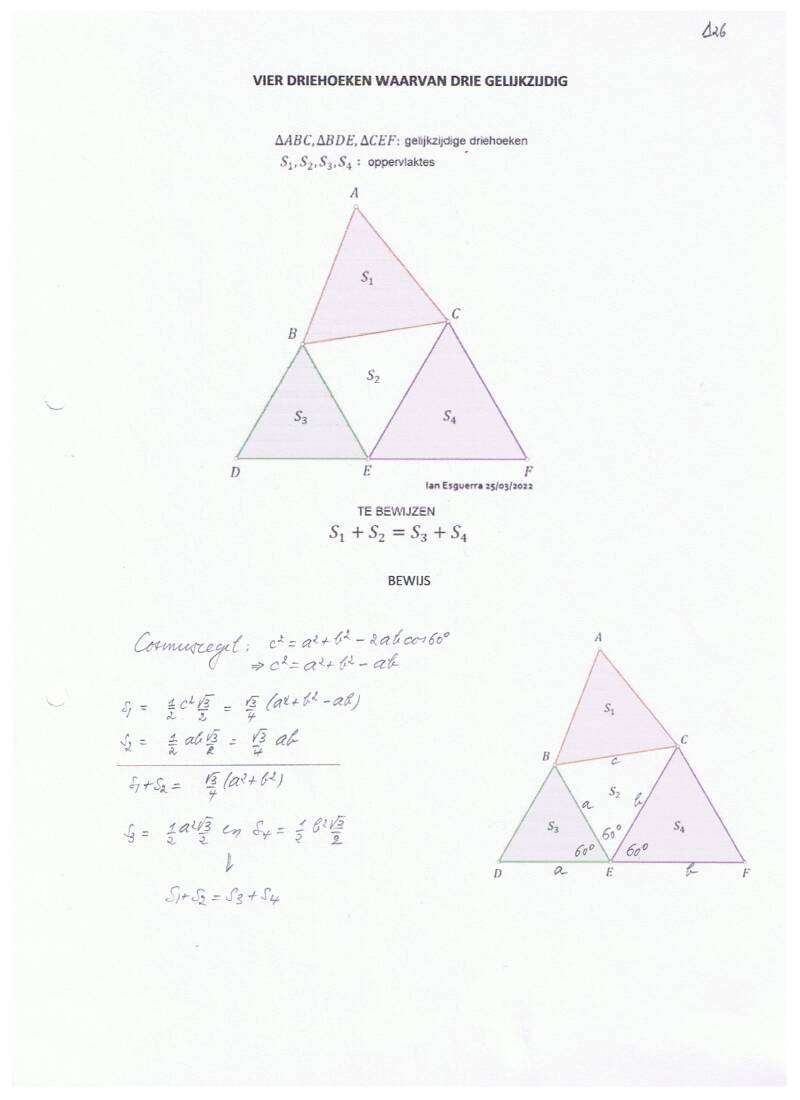 Δ26
VIER DRIEHOEKEN WAARVAN DRIE GELIJKZIJDIG
ΔABC, ΔBDE, ΔCEF: gelijkzijdige driehoeken
S₁, S₂, S₃, S₄ : oppervlaktes
A
S₁
C
B
S₂
S₃
S₄
D
E
F
Ian Esguerra 25/03/2022
TE BEWIJZEN
S₁ + S₂ = S₃ + S₄
BEWIJS
Cosinusregel: c² = a² + b² - 2ab cos 60°
⇒ c² = a² + b² - ab
S₁ = 1/2 c² √3/2 = √3/4 (a² + b² - ab)
S₂ = 1/2 ab √3/2 = √3/4 ab
S₁ + S₂ = √3/4 (a² + b²)
S₃ = 1/2 a² √3/2 en S₄ = 1/2 b² √3/2
⇓
S₁ + S₂ = S₃ + S₄
A
S₁
C
B
c
S₂
a
b
S₃
60°
S₄
60°
60°
D
a
E
b
F